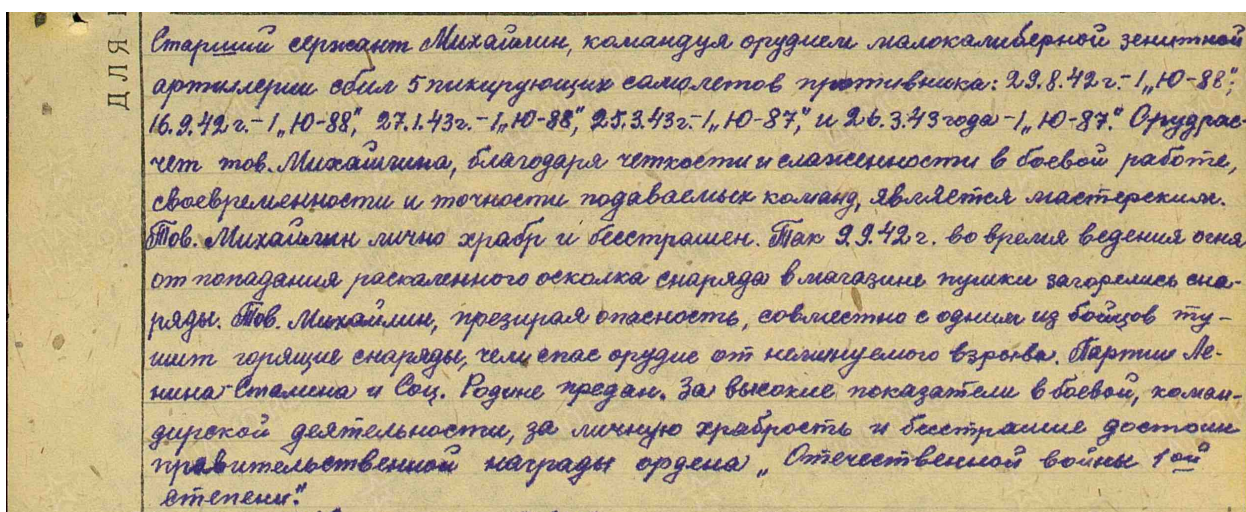 ДЛЯ
Старший сержант Михайлин, командуя орудием малокалиберной зенитной
артиллерии сбил 5 пикирующих самолетов противника: 29.8.42 г.-1 „Ю-88",
16.9.42 г.-1 „Ю-88", 27.1.43г.-1 „Ю-88", 25.3.43г-1 „Ю-87", и 26.3.43 года-1 „Ю-87". Орудрас-
чет тов. Михайлина, благодаря четкости и слаженности в боевой работе,
своевременности и точности подаваемых команд, является мастерским.
Тов. Михайлин лично храбр и бесстрашен. Так 9.9.42 г. во время ведения огня
от попадания раскаленного осколка снаряда в магазине пушки загорелись сна-
ряды. Тов. Михайлин, презирая опасность, совместно с одним из бойцов ту-
шит горящие снаряды, чем спас орудие от неминуемого взрыва. Партии Ле-
нина-Сталина и Соц. Родине предан. За высокие показатели в боевой, коман-
дирской деятельности, за личную храбрость и бесстрашие достоин
правительственной награды ордена „Отечественной войны 1ой
степени".